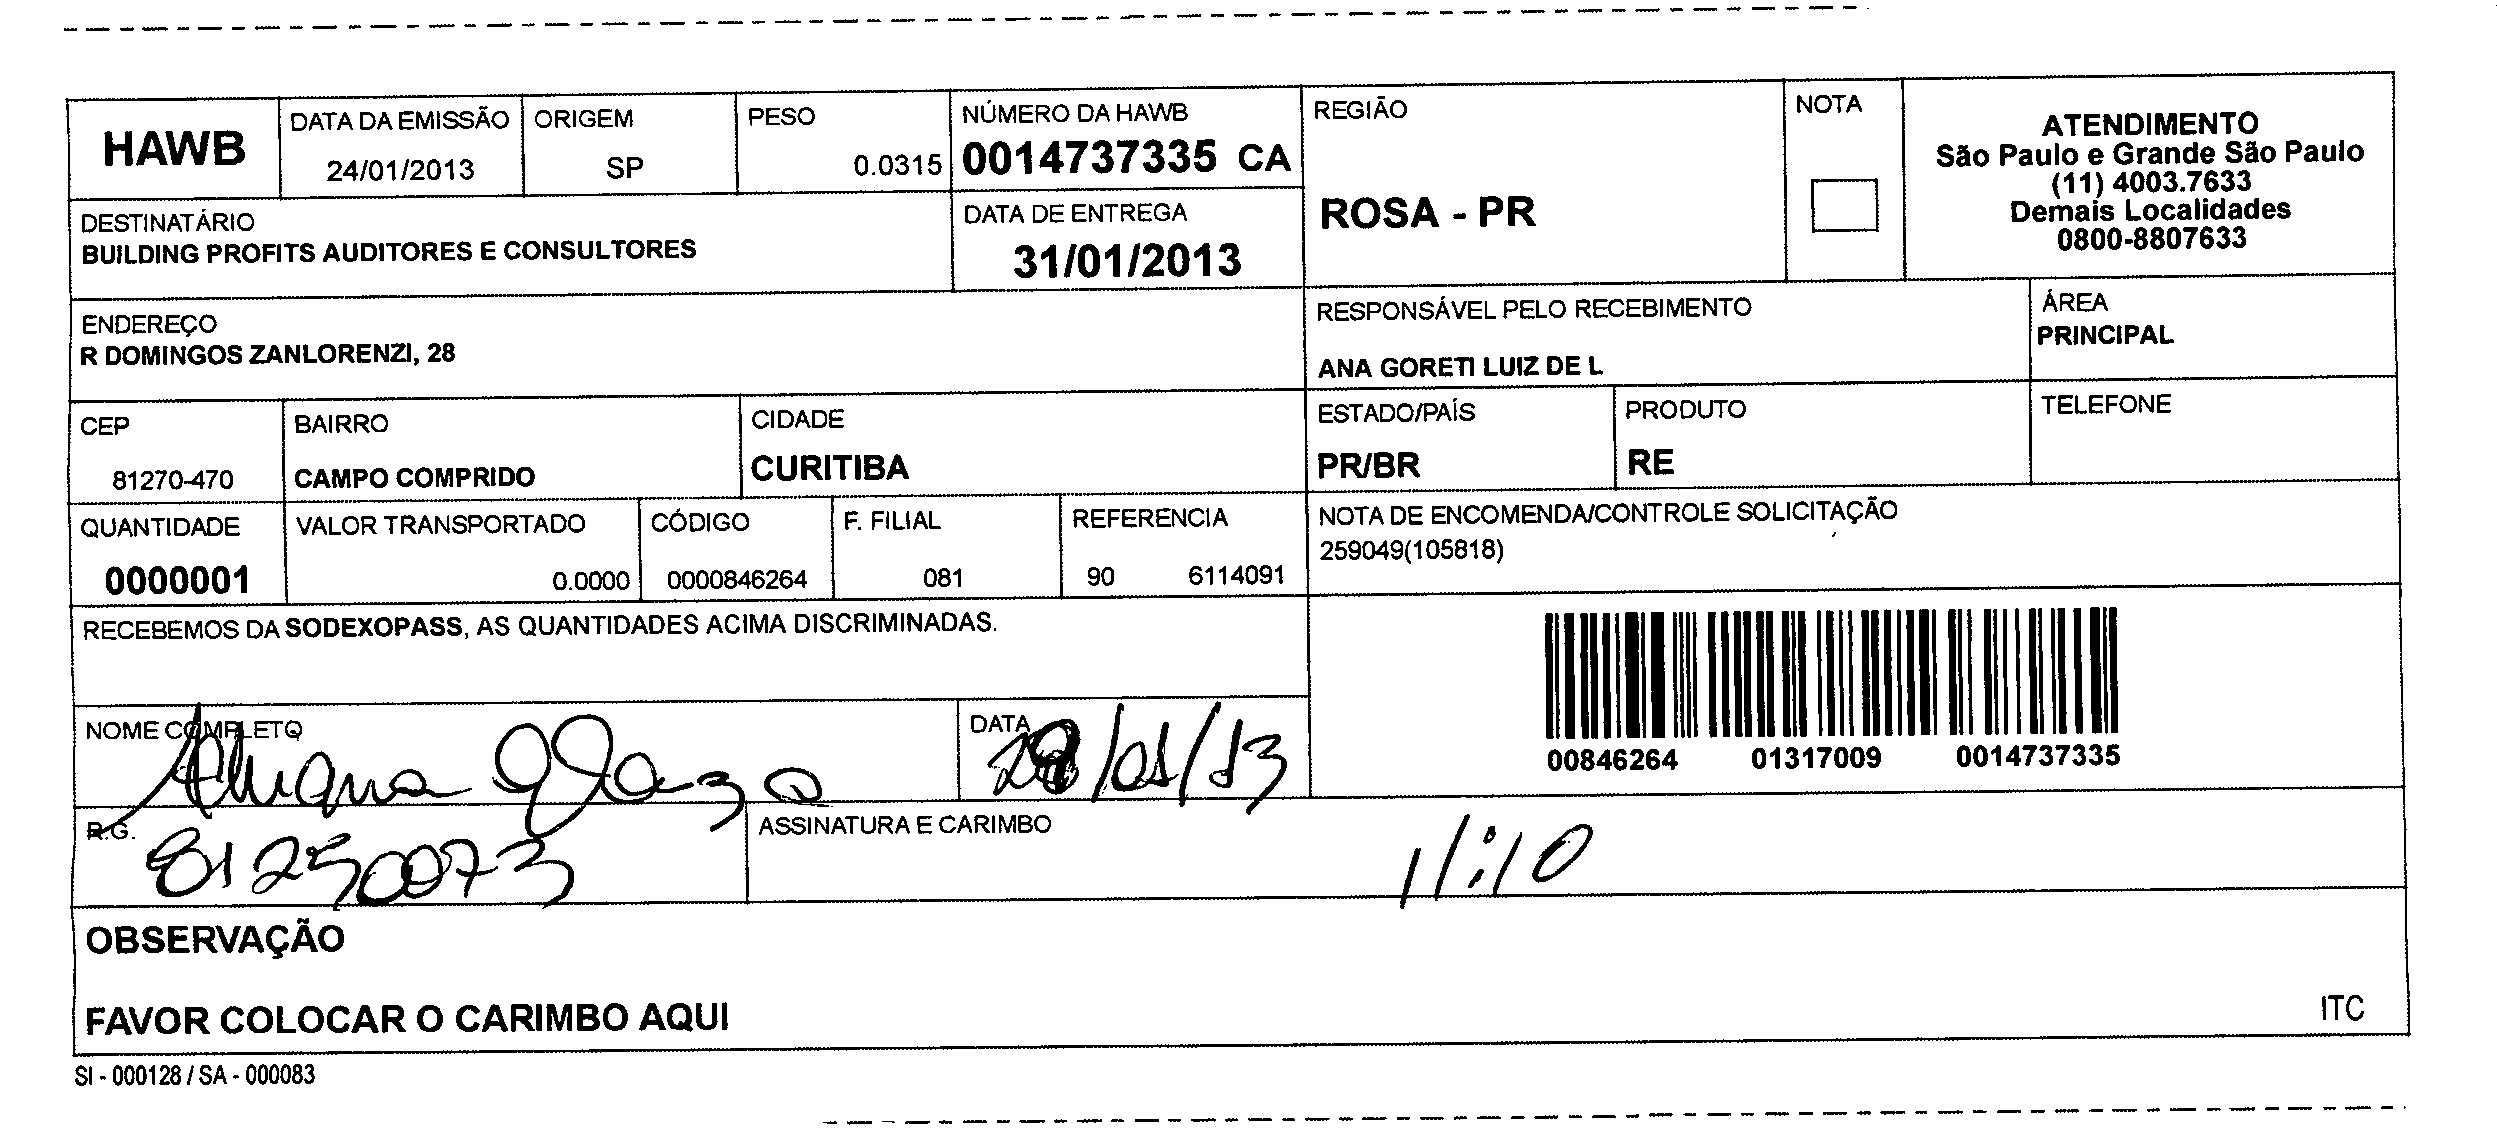 HAWB
DATA DA EMISSÃO
24/01/2013
ORIGEM
SP
PESO
0.0315
NÚMERO DA HAWB
0014737335 CA
REGIÃO
ROSA - PR
NOTA
ATENDIMENTO
São Paulo e Grande São Paulo
(11) 4003.7633
Demais Localidades
0800-8807633
DESTINATÁRIO
BUILDING PROFITS AUDITORES E CONSULTORES
DATA DE ENTREGA
31/01/2013
ENDEREÇO
R DOMINGOS ZANLORENZI, 28
RESPONSÁVEL PELO RECEBIMENTO
ANA GORETI LUIZ DE L
ÁREA
PRINCIPAL
CEP
81270-470
BAIRRO
CAMPO COMPRIDO
CIDADE
CURITIBA
ESTADO/PAÍS
PR/BR
PRODUTO
RE
TELEFONE
QUANTIDADE
0000001
VALOR TRANSPORTADO
0.0000
CÓDIGO
0000846264
F. FILIAL
081
REFERENCIA
90 6114091
NOTA DE ENCOMENDA/CONTROLE SOLICITAÇÃO
259049(105818)
RECEBEMOS DA SODEXOPASS, AS QUANTIDADES ACIMA DISCRIMINADAS.
00846264 01317009 0014737335
NOME COMPLETO
DATA
28/01/13
R.G.
81250073
ASSINATURA E CARIMBO
11:10
OBSERVAÇÃO
FAVOR COLOCAR O CARIMBO AQUI
ITC
SI - 000128 / SA - 000083